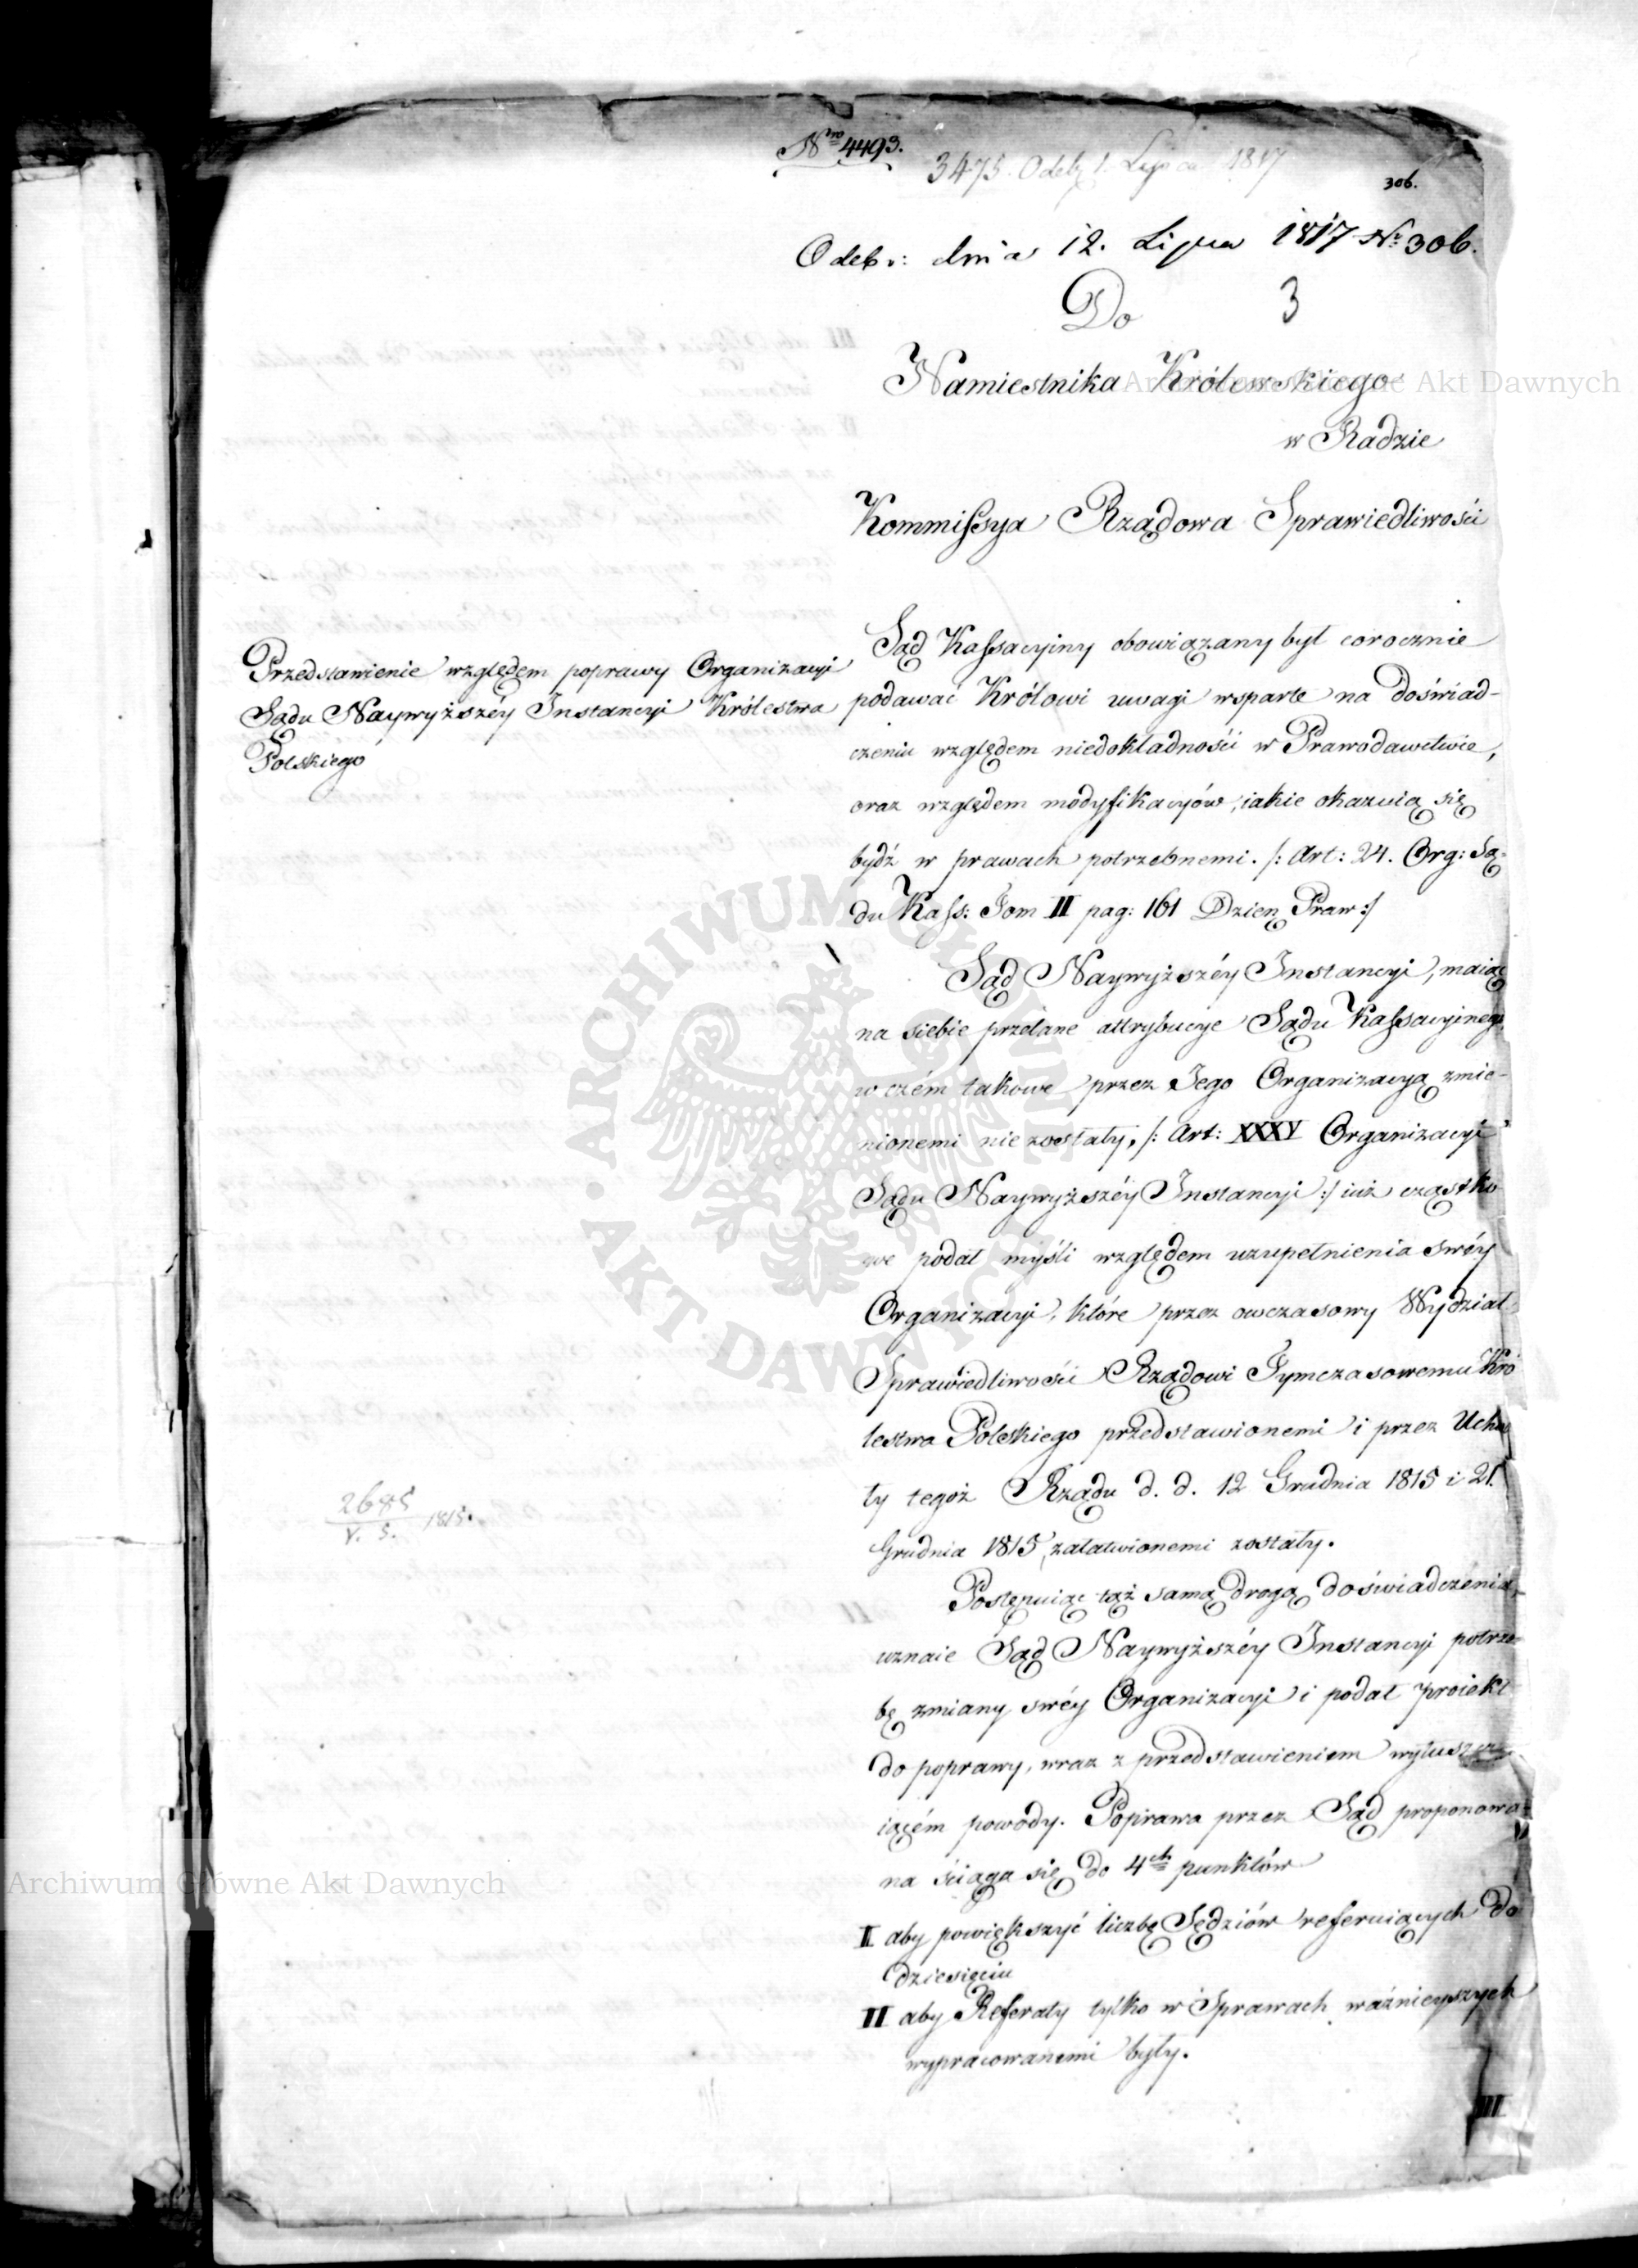 Nro 4493.
3475. Odeb. 1. Lipca 1817
306.
Odeb: dnia 12. Lipca 1817 No 306.
Do
3
Namiestnika Królewskiego
w Radzie
Kommissya Rządowa Sprawiedliwości
Przedstawienie względem poprawy Organizacyi
Sądu Naywyższéy Instancyi Królestwa
Polskiego
Sąd Kassacyiny obowiązany był corocznie
podawać Królowi uwagi wsparte na doświad-
czeniu względem niedokładności w Prawodawctwie,
oraz względem modyfikacyów, iakie okazuią się
bydź w prawach potrzebnemi. /: Art: 24. Org: Są-
du Kass: Tom II pag: 161 Dzien Praw :/
Sąd Naywyższéy Instancyi, maiąc
na siebie przelane attrybucye Sądu Kassacyinego
w czém takowe przez Jego Organizacyą zmie-
nionemi nie zostały, /: Art: XXXV Organizacyi
Sądu Naywyższéy Instancyi :/ iuż cząstko
we podał myśli względem uzupełnienia swéy
Organizacyi, które przez owczasowy Wydział
Sprawiedliwości Rządowi Tymczasowemu Kró
lestwa Polskiego przedstawionemi i przez Uchwa
ły tegoż Rządu d. d. 12 Grudnia 1815 i 21.
Grudnia 1815, załatwionemi zostały.
2685
V. S. 1815.
Postępuiąc tąż samą drogą doświadczenia,
uznaie Sąd Naywyższéy Instancyi potrze-
bę zmiany swéy Organizacyi i podał proiekt
do poprawy, wraz z przedstawieniem wyłuszcza
iącém powody. Poprawa przez Sąd proponowa-
na ściąga się do 4ch punktów
I aby powiększyć liczbę Sędziów referuiących do
dziesięciu
II aby Referaty tylko w Sprawach ważnieyszych
wypracowanemi były.
III
Archiwum Główne Akt Dawnych
Archiwum Główne Akt Dawnych
ARCHIWUM GŁÓWNE
AKT DAWNYCH